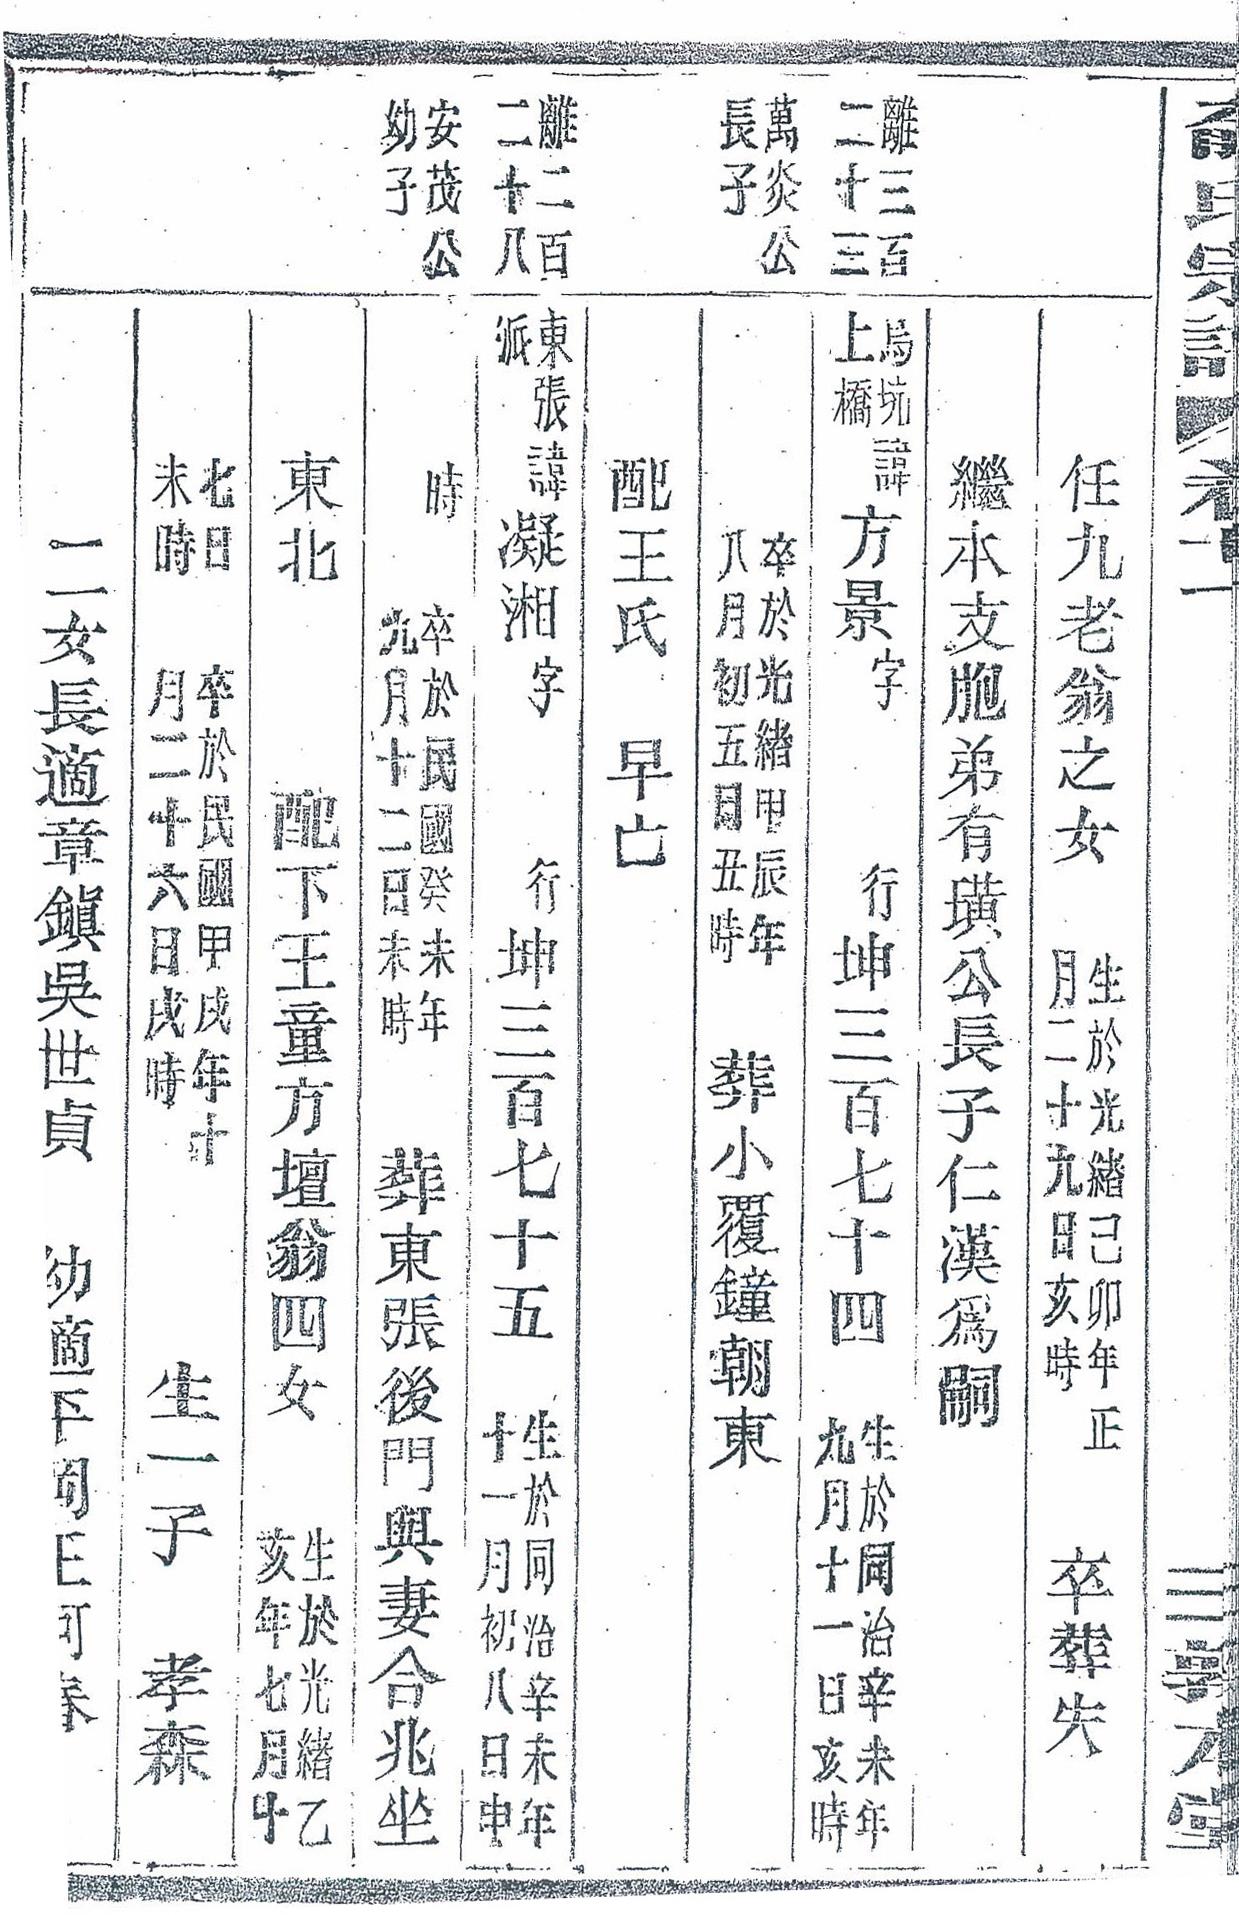 氏宗譜 卷二 三 敦本堂
任九老翁之女 生於光緒己卯年正月二十九日亥時 卒葬失
繼本支胞弟有璜公長子仁漢爲嗣
離三百二十三 烏坑上橋 諱方景字 行坤三百七十四 生於同治辛未年九月十一日亥時
萬炎公長子 卒於光緒甲辰年八月初五日丑時 葬小覆鐘朝東
配王氏 早亡
離二百二十八 東張派 諱凝湘字 行坤三百七十五 生於同治辛未年十一月初八日申
安茂公幼子 時 卒於民國癸未年九月十二日未時 葬東張後門與妻合兆坐
東北 配下王童方壇翁四女 生於光緒乙亥年七月十
七日未時 卒於民國甲戌年十月二十六日戌時 生一子 孝森
二女長適章鎭吳世貞 幼適下 王 春